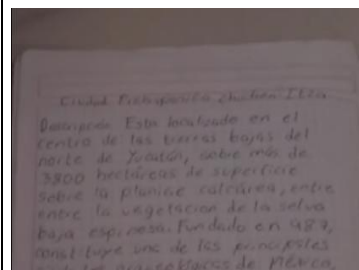 Ciudad Prehispánica Chichén-Itzá
Descripción Esta localizado en el
centro de las tierras bajas del
norte de Yucatán, sobre más de
3800 hectáreas de superficie
sobre la planicie calcárea, entre
entre la vegetación de la selva
baja espinosa. Fundado en 987,
constituye uno de los principales
de México,